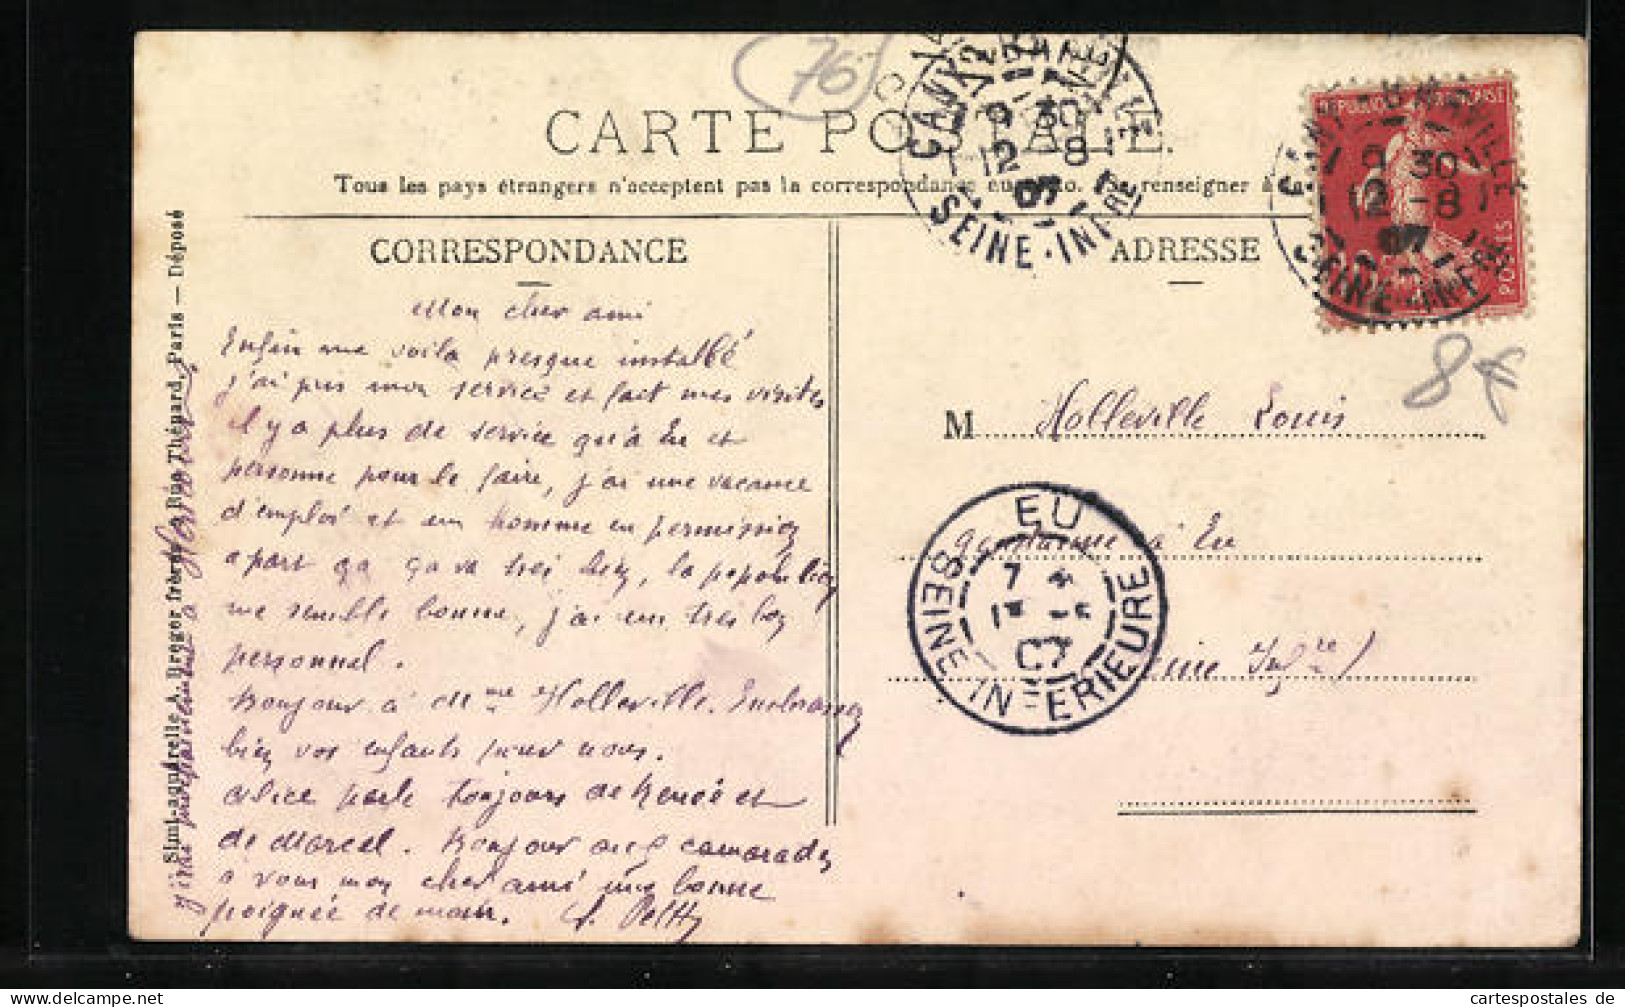 76
CARTE POSTALE.
Tous les pays étrangers n'acceptent pas la correspondance au renseigner à la
CORRESPONDANCE
Mon cher ami
Enfin me voila presque installé
j'ai pris mon service et fait mes visites
il y a plus de service qu'à Eu et
personne pour le faire, j'ai une vacance
d'emploi et un homme en permission
a part ça ça va très bien, la population
me semble bonne, j'ai un très bon
personnel.
Bonjour à Mme Holleville. Embrassez
bien vos enfants pour nous.
Alice parle toujours de Renée et
de Marcel. Bonjour aux camarades
a vous mon cher ami une bonne
poignée de main.
ADRESSE
M Holleville Louis
gendarme à Eu
Seine Infre)
8€
CANY-BARVILLE
9 30
12 -8
07
SEINE-INFRE
CANY-BARVILLE
9 30
12 -8
07
SEINE-INFRE
RÉPUBLIQUE FRANÇAISE
POSTES
EU
7
07
SEINE-INFERIEURE
Simi-aquarelle A. Breger frères, 9 Rue Thénard, Paris — Déposé
cartespostales de